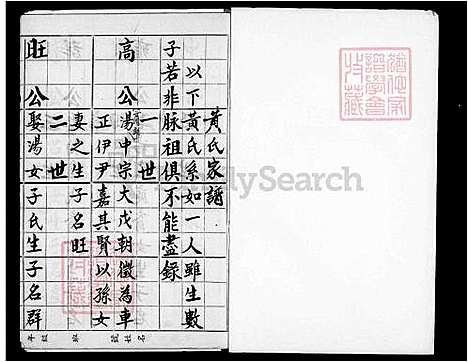 黃氏家譜
以下黃氏系如一人雖生數
子若非脈祖俱不能盡錄
一世
高公
湯中宗大戊朝徵為車
正伊尹嘉其賢以孫女
妻之生子名旺
二世
旺公
娶湯女子氏生子名群
FamilySearch
名
號
班
級
年